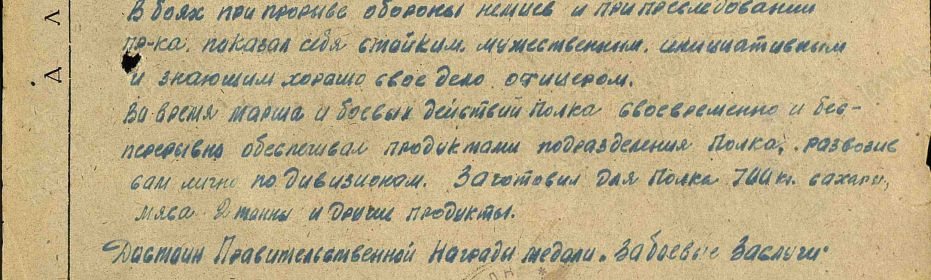 В боях при прорыве обороны немцев и при преследовании
пр-ка, показал себя стойким, мужественным, инициативным
и знающим хорошо свое дело офицером.
Во время марша и боевых действий Полка своевременно и бес-
перерывно обеспечивал продуктами подразделения Полка, развозив
сам лично по дивизионам. Заготовил для Полка 700 кг. сахару,
мяса 2 тонны и другие продукты.
Достоин Правительственной Награды медали "За боевые Заслуги"